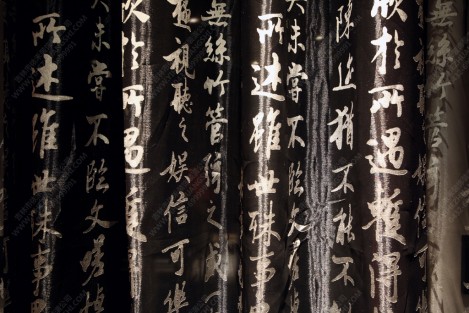 無絲竹管
欣於所遇暫得
陳迹猶不能不
未嘗不臨文嗟悼
所述雖世殊事
無絲竹管弦之盛
視聽之娛信可樂
於所遇暫
未嘗不臨文嗟悼
所述雖世殊事